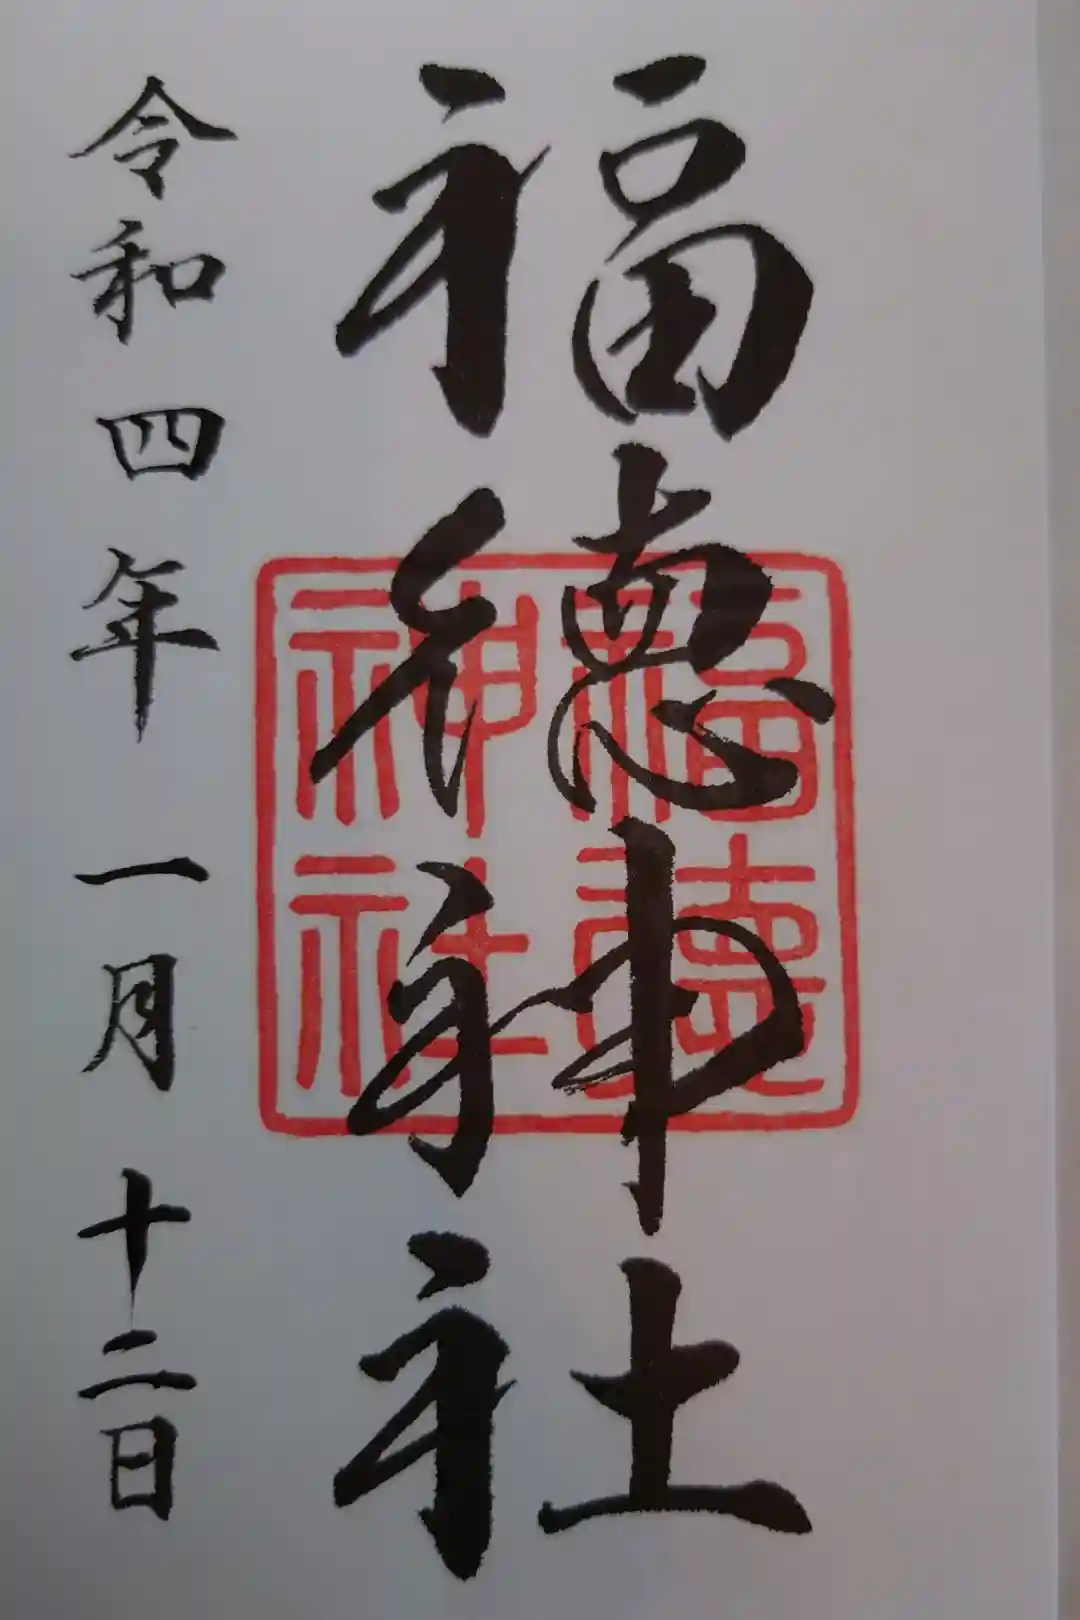 福徳神社
福徳神社
令和四年一月十二日